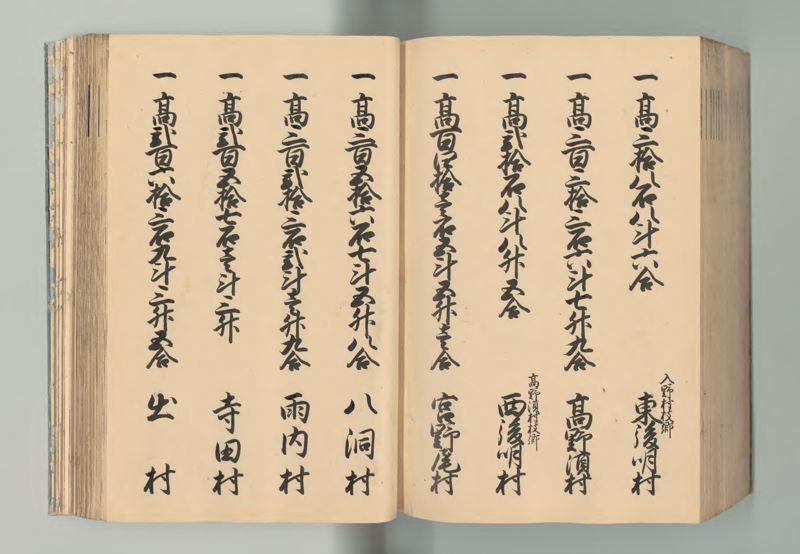 一 高三拾八石八斗六合
入野村枝郷
東後明村
一 高三百三拾三石六斗七升九合
高野須村
一 高弐拾石八斗八升五合
高野須村枝郷
西後明村
一 高百四拾壱石五斗五升壱合
宮野尾村
一 高三百五拾六石七斗五升八合
八洞村
一 高三百弐拾三石弐斗壱升九合
雨内村
一 高弐百五拾七石壱斗三升
寺田村
一 高弐百六拾三石九斗三升五合
出村